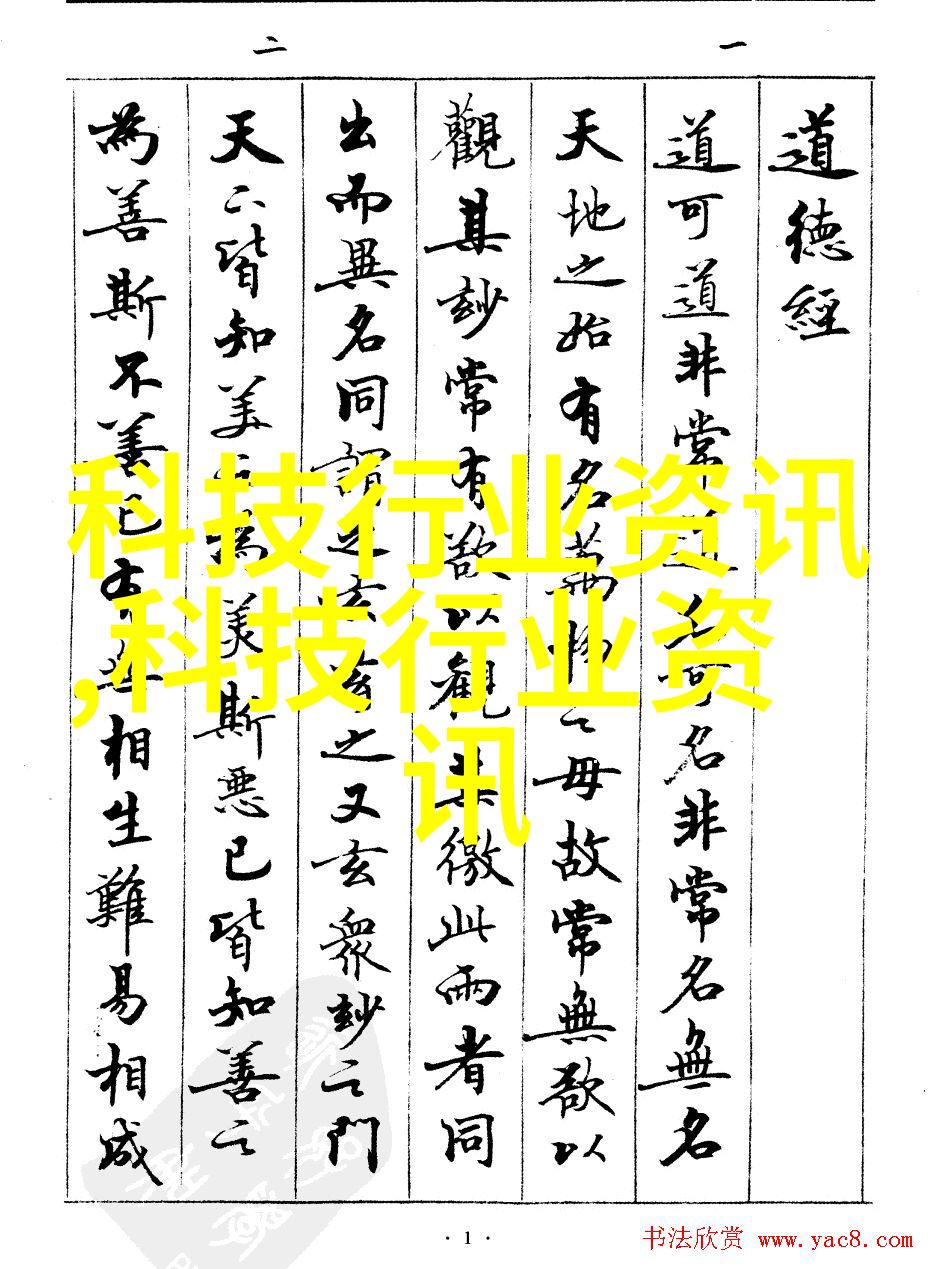 一
二
道德經
道可道非常道名可名非常名無名
天地之始有名萬物之母故常無欲以
觀其妙常有欲以觀其徼此兩者同
出而異名同謂之玄玄之又玄眾妙之門
天下皆知美之為美斯惡已皆知善之
為善斯不善已有無相生難易相成
科技行业资讯
,科技行业资
讯
· 1 ·
书法欣赏 www.yac8.com